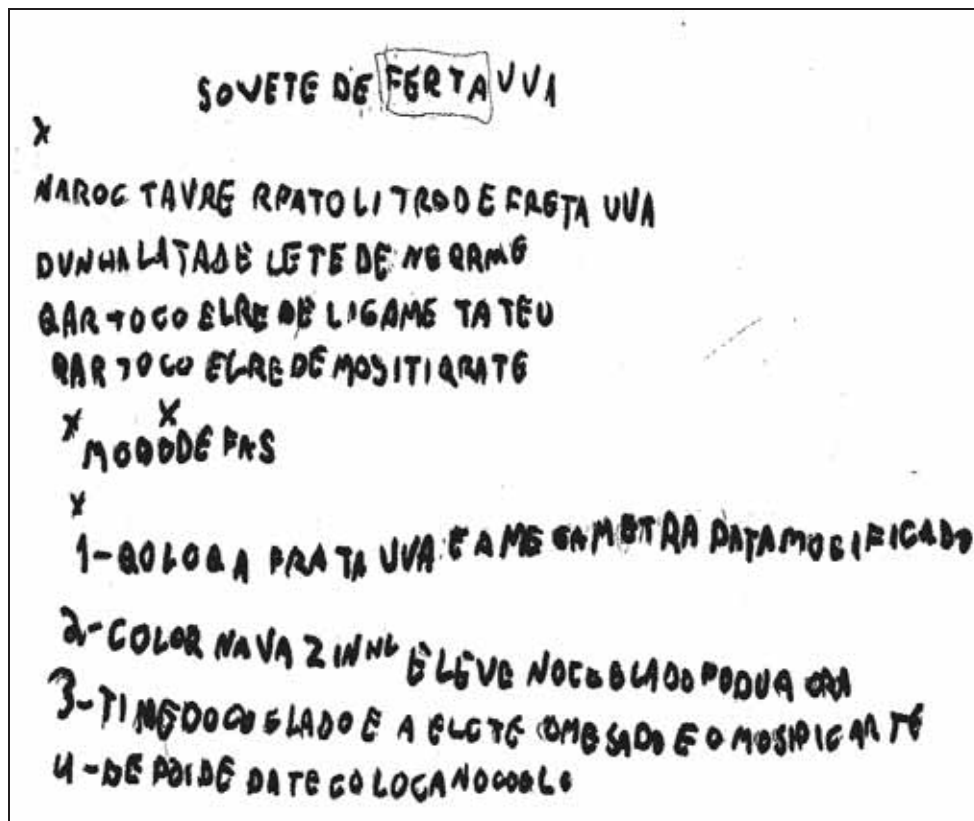 SOVETE DE FERTA UVA
X
NAROC TAVRE RPATO LITRO DE FRETA UVA
DUNHA LATA DE LETE DE NGQRMG
QAR TOCO ELRE DE LIGAME TA TEU
QAR TOCO ELRE DE MOSITIQRATE
X X
MOODDE FAS
X
1-QOLOQA FRATA UVA E A ME GAMETRA DATAMOSIFICADO
2-COLOR NA VAZINHL E LEVE NOCOELADO PODUA ORA
3-TIREDOCOELADO E A ELETE OMESADO E O MOSIPIGARTE
4-DE POIDE DATE COLOCA NOCOELO